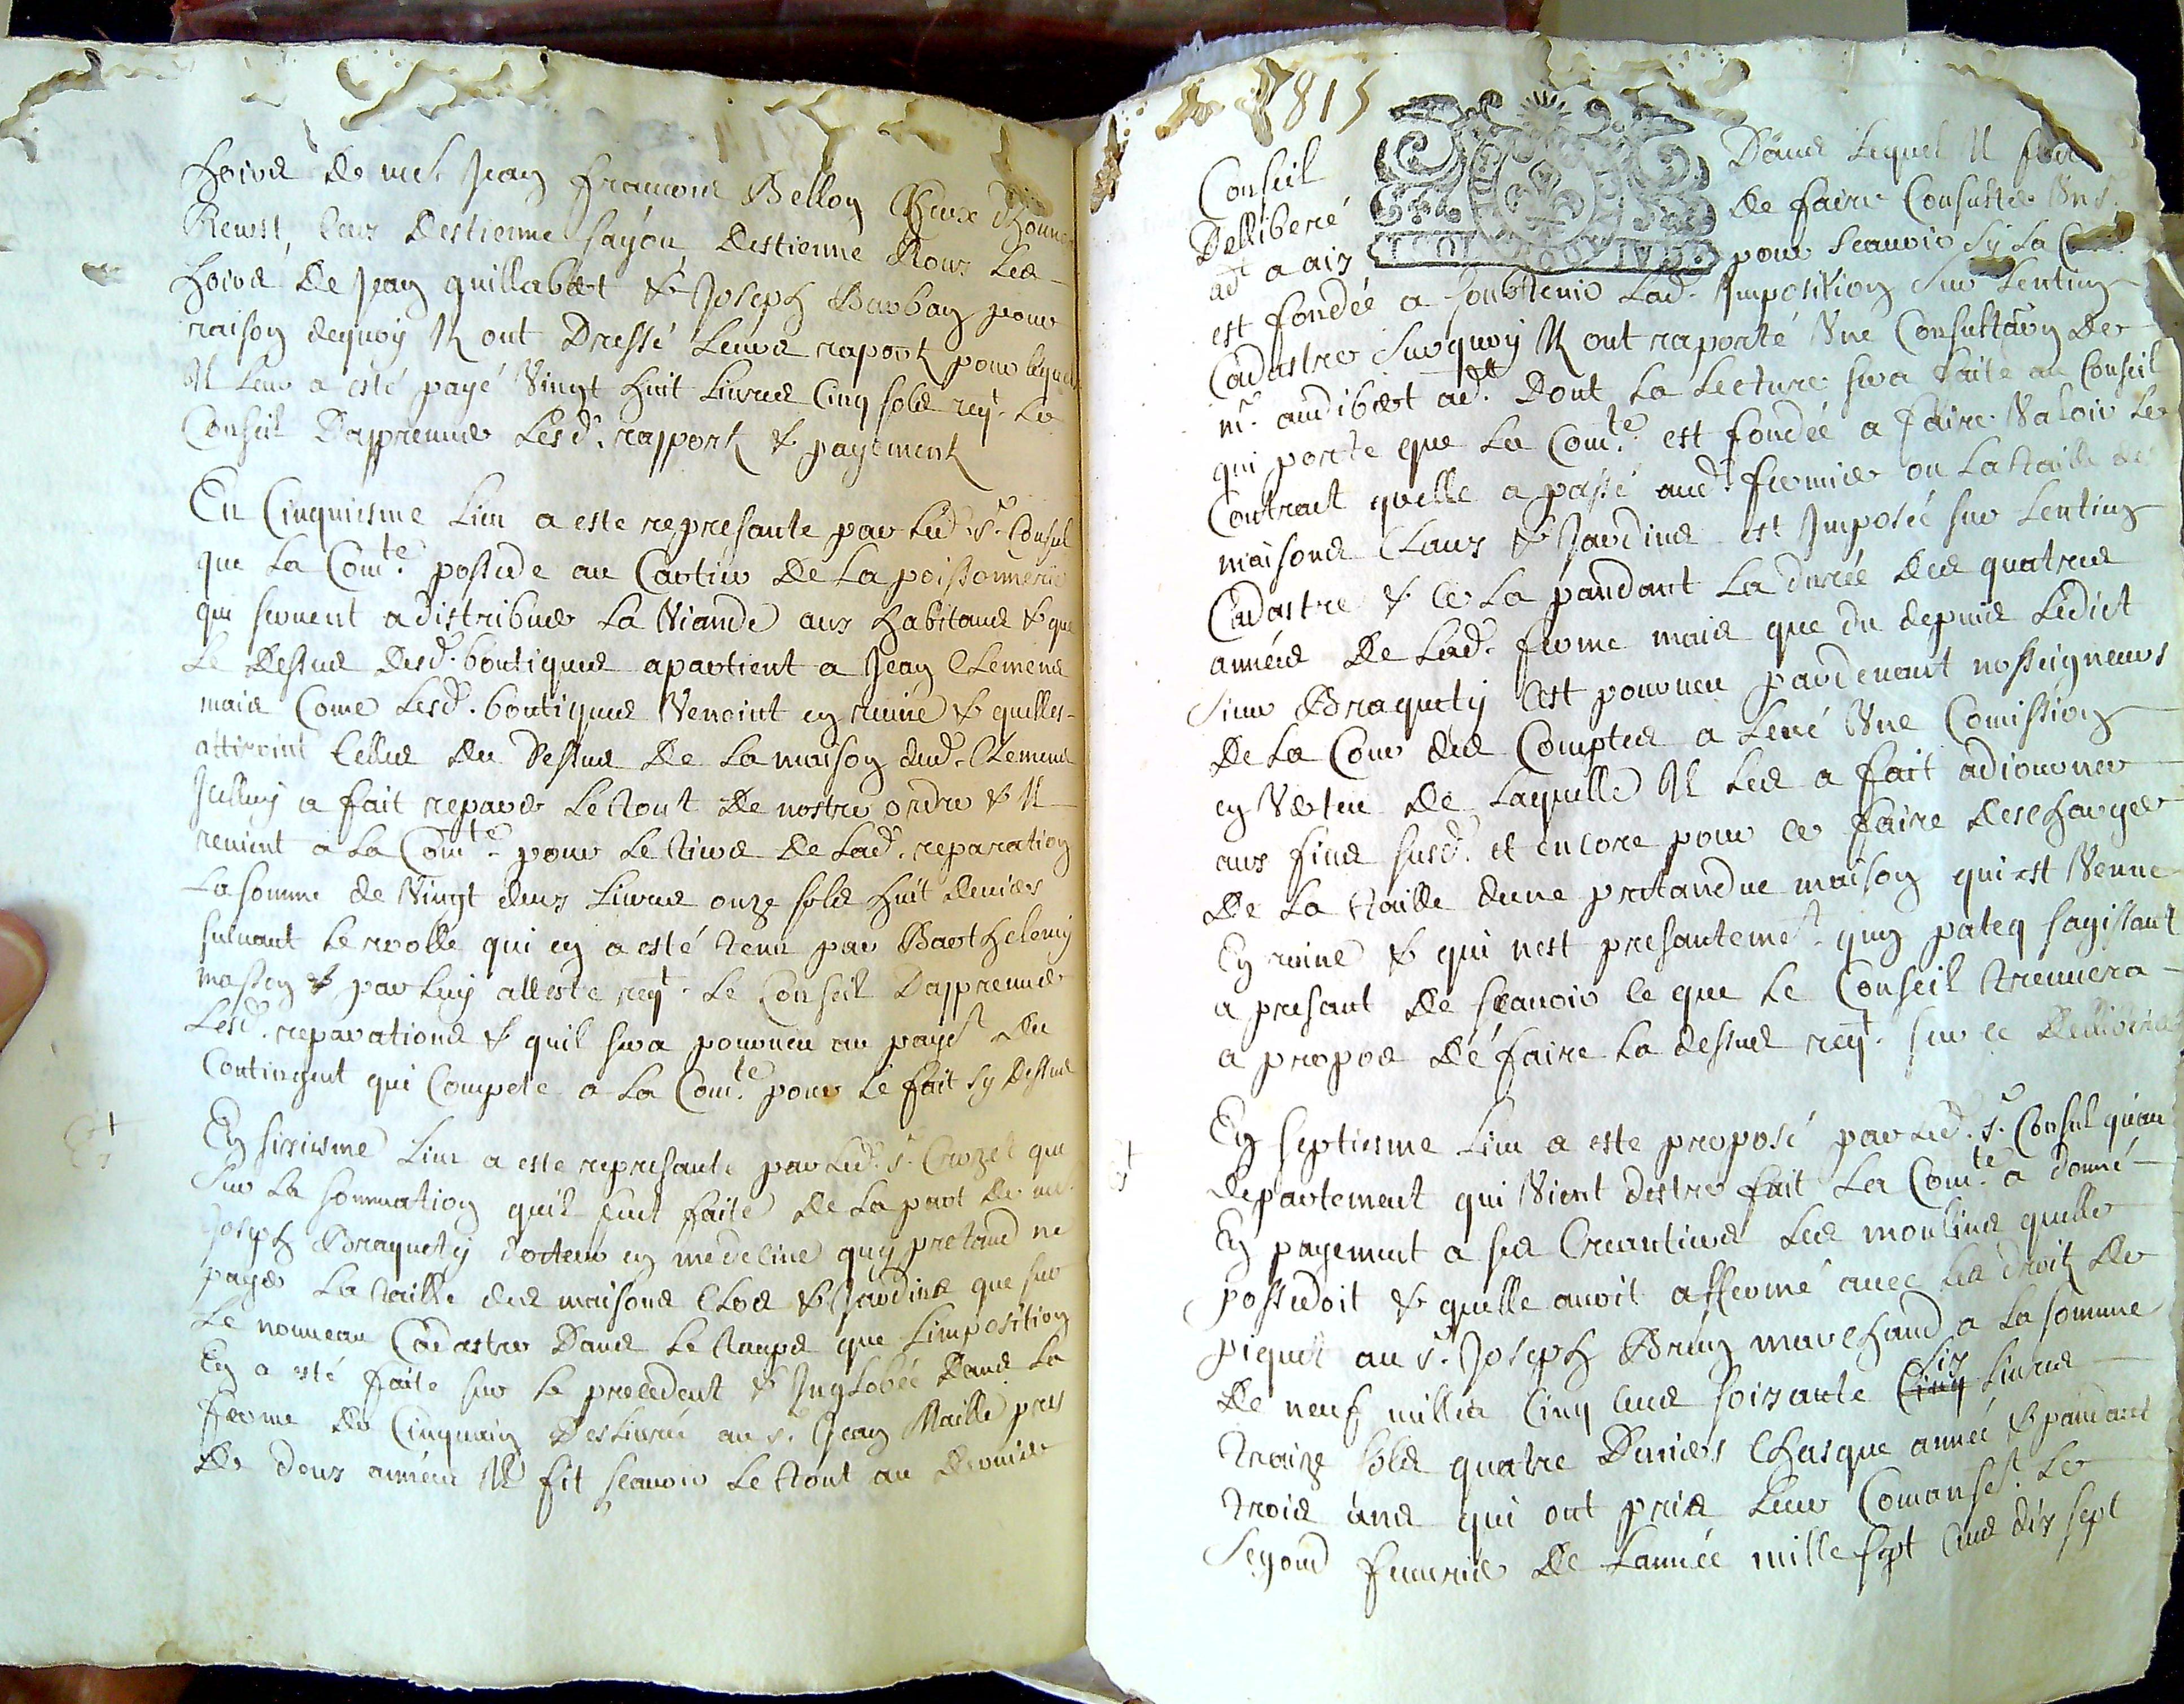 hoirs de me. Jean francois Bellon Chaix dhonnet
Reust, ceux destienne sayou destienne Roux Les
hoirs de Jean guillabert & Joseph Barban pour
raison dequoy Il ont Dressé Leurs raport pour lequel
Il leur a esté payé Vingt huit Livres Cinq sols reqt. Le
Conseil Dapprenuer Lesd. rapport & payement
En Cinquiesme Lieu a este represante par led. sr. Consul
que La Comte. possede au Cartier de La poissonnerie
qui seruent a distribuer La Viande aux habitans & que
Le Dessus desd. boutiques apartient a Jean Clemens
mais Come Lesd. boutiques Venoint en ruine & quelles
attiroint Celles du Dessus De La maison dud. Clemens
Jcelluy a fait reparer Le tout De nostre ordre & Il
reuient a La Comte. pour Le tiers De Lad. reparation
La somme de Vingt deux Liures onze sols huit deniers
suiuant Le rolle qui en a esté tenu par Barthelemy
massen & par luy attesté reqt. Le Conseil Dapprenuer
Lesd. reparations & quil sera pourueu au payet du
Contingent qui Compete a La Comte. pour Le fait sy dessus
En sixiesme Lieu a este represante par Led. sr. Crozet que
Sur La sommation quil feut faite De La part De me.
Joseph Braquety docteur en medecine quy pretand ne
payer La taille des maisons Clos & Jardins que sur
Le nouueau Cadastre Dans Le temps que Limposition
En a esté faite sur Le precedent & Jnglobée Dans La
ferme du Cinquain Desliurée au sr. Jean Maille pour
De deux années Il fit scauoir Le tout au dernier
1815
Conseil Dans Lequel Il fut
Delliberé de faire Consulter Un sr.
adt a aix pour scauoir sy La
est fondée a soubstenir Lad. Imposition sur Lentien
Cadastre surquoy Il ont raporté Une Consultaon de
mr. audibert adt. Dont La Lecture sera faite au Conseil
qui porte que La Comte. est fondée a faire Valoir Le
Contract quelle a passé aud. fermier ou La taille des
maisons Claux & Jardins est Imposée sur Lentien
Cadastre & Ce La pandant La durée des quatres
années De Lad. ferme mais que du depuis Ledict
sieur Braquety Cest pourueu pardeuant nosseigneurs
De La Cour des Comptes a Leué Une Comission
en Vertu De Laquelle Il Les a fait adiourner
aux fins susd. et encore pour ce faire descharger
De La taille dune pretandue maison qui est Venue
En ruine & qui nest presantemet. quy pateq sagissant
a presant De scauoir ce que Le Conseil treuuera
a propos De faire La dessus reqt. sur ce Delliberer
En septiesme Lieu a este proposé par Led. sr. Consul quau
departement qui Vient destre fait La Comte. a donné
En payement a ses Creantiers Les moulins quelle
possedoit & quelle auoit affermé auec Les droit De
piquet au sr. Joseph Brun marchand a La somme
De neuf milles Cinq cens soixante Cinq six Liures
traize sols quatre Deniers Chasque année & pandant
trois ans qui ont pris Leur Comanset. Le
Segond feurier De Lannée mille sept Cens dix sept